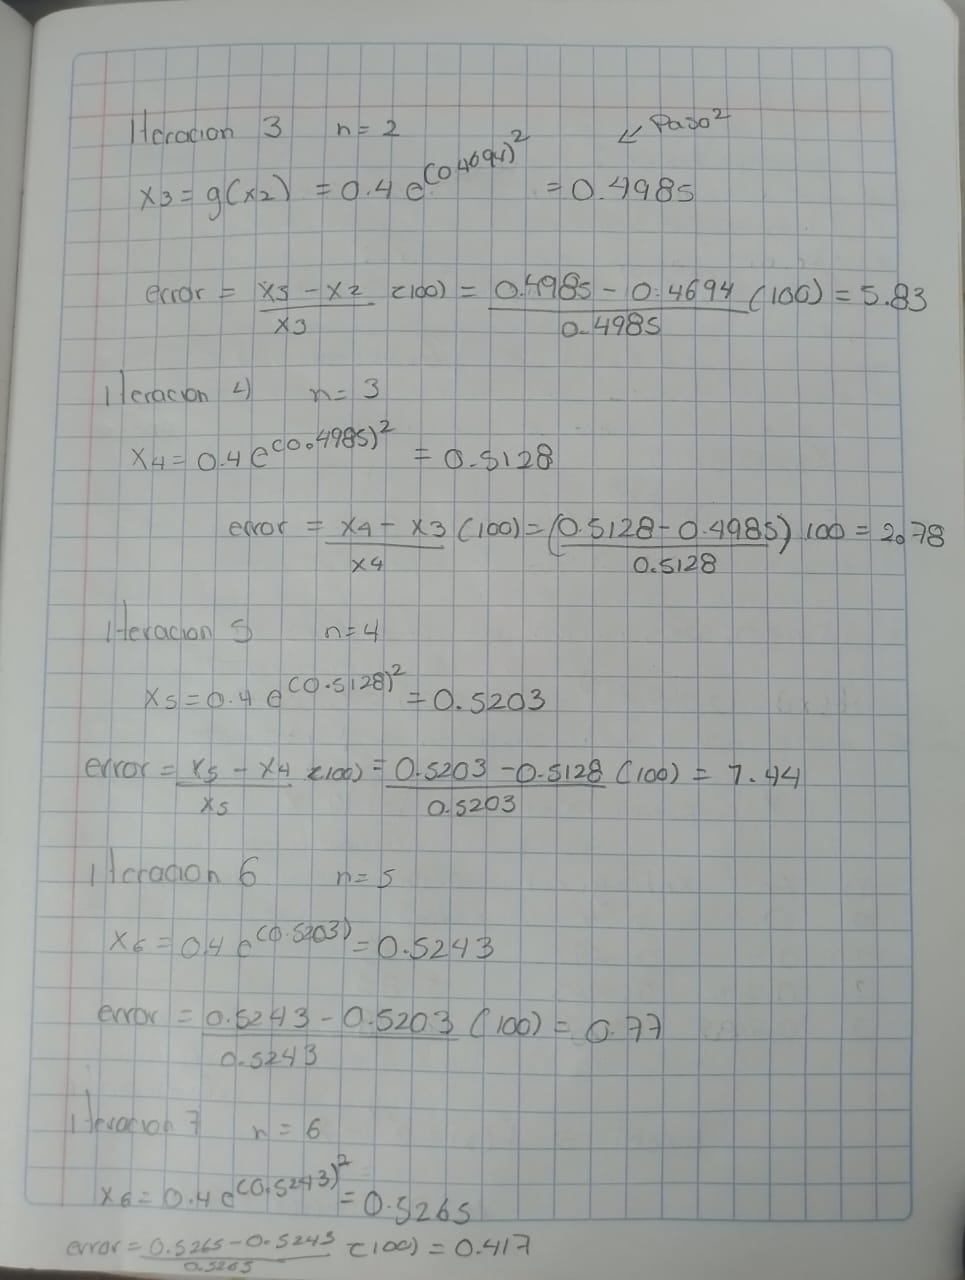 Iteracion 3 n=2 ↙ Paso²
x3 = g(x2) = 0.4 e^(0.4694)² = 0.4985
error = x3 - x2 / x3 (100) = 0.4985 - 0.4694 / 0.4985 (100) = 5.83
Iteracion 4) n=3
x4 = 0.4 e^(0.4985)² = 0.5128
error = x4 - x3 / x4 (100) = (0.5128 - 0.4985 / 0.5128) 100 = 2.78
Iteracion 5 n=4
x5 = 0.4 e^(0.5128)² = 0.5203
error = x5 - x4 / x5 (100) = 0.5203 - 0.5128 / 0.5203 (100) = 1.44
Iteracion 6 n=5
x6 = 0.4 e^(0.5203) = 0.5243
error = 0.5243 - 0.5203 / 0.5243 (100) = 0.77
Iteracion 7 n=6
x6 = 0.4 e^(0.5243)² = 0.5265
error = 0.5265 - 0.5243 / 0.5265 (100) = 0.417